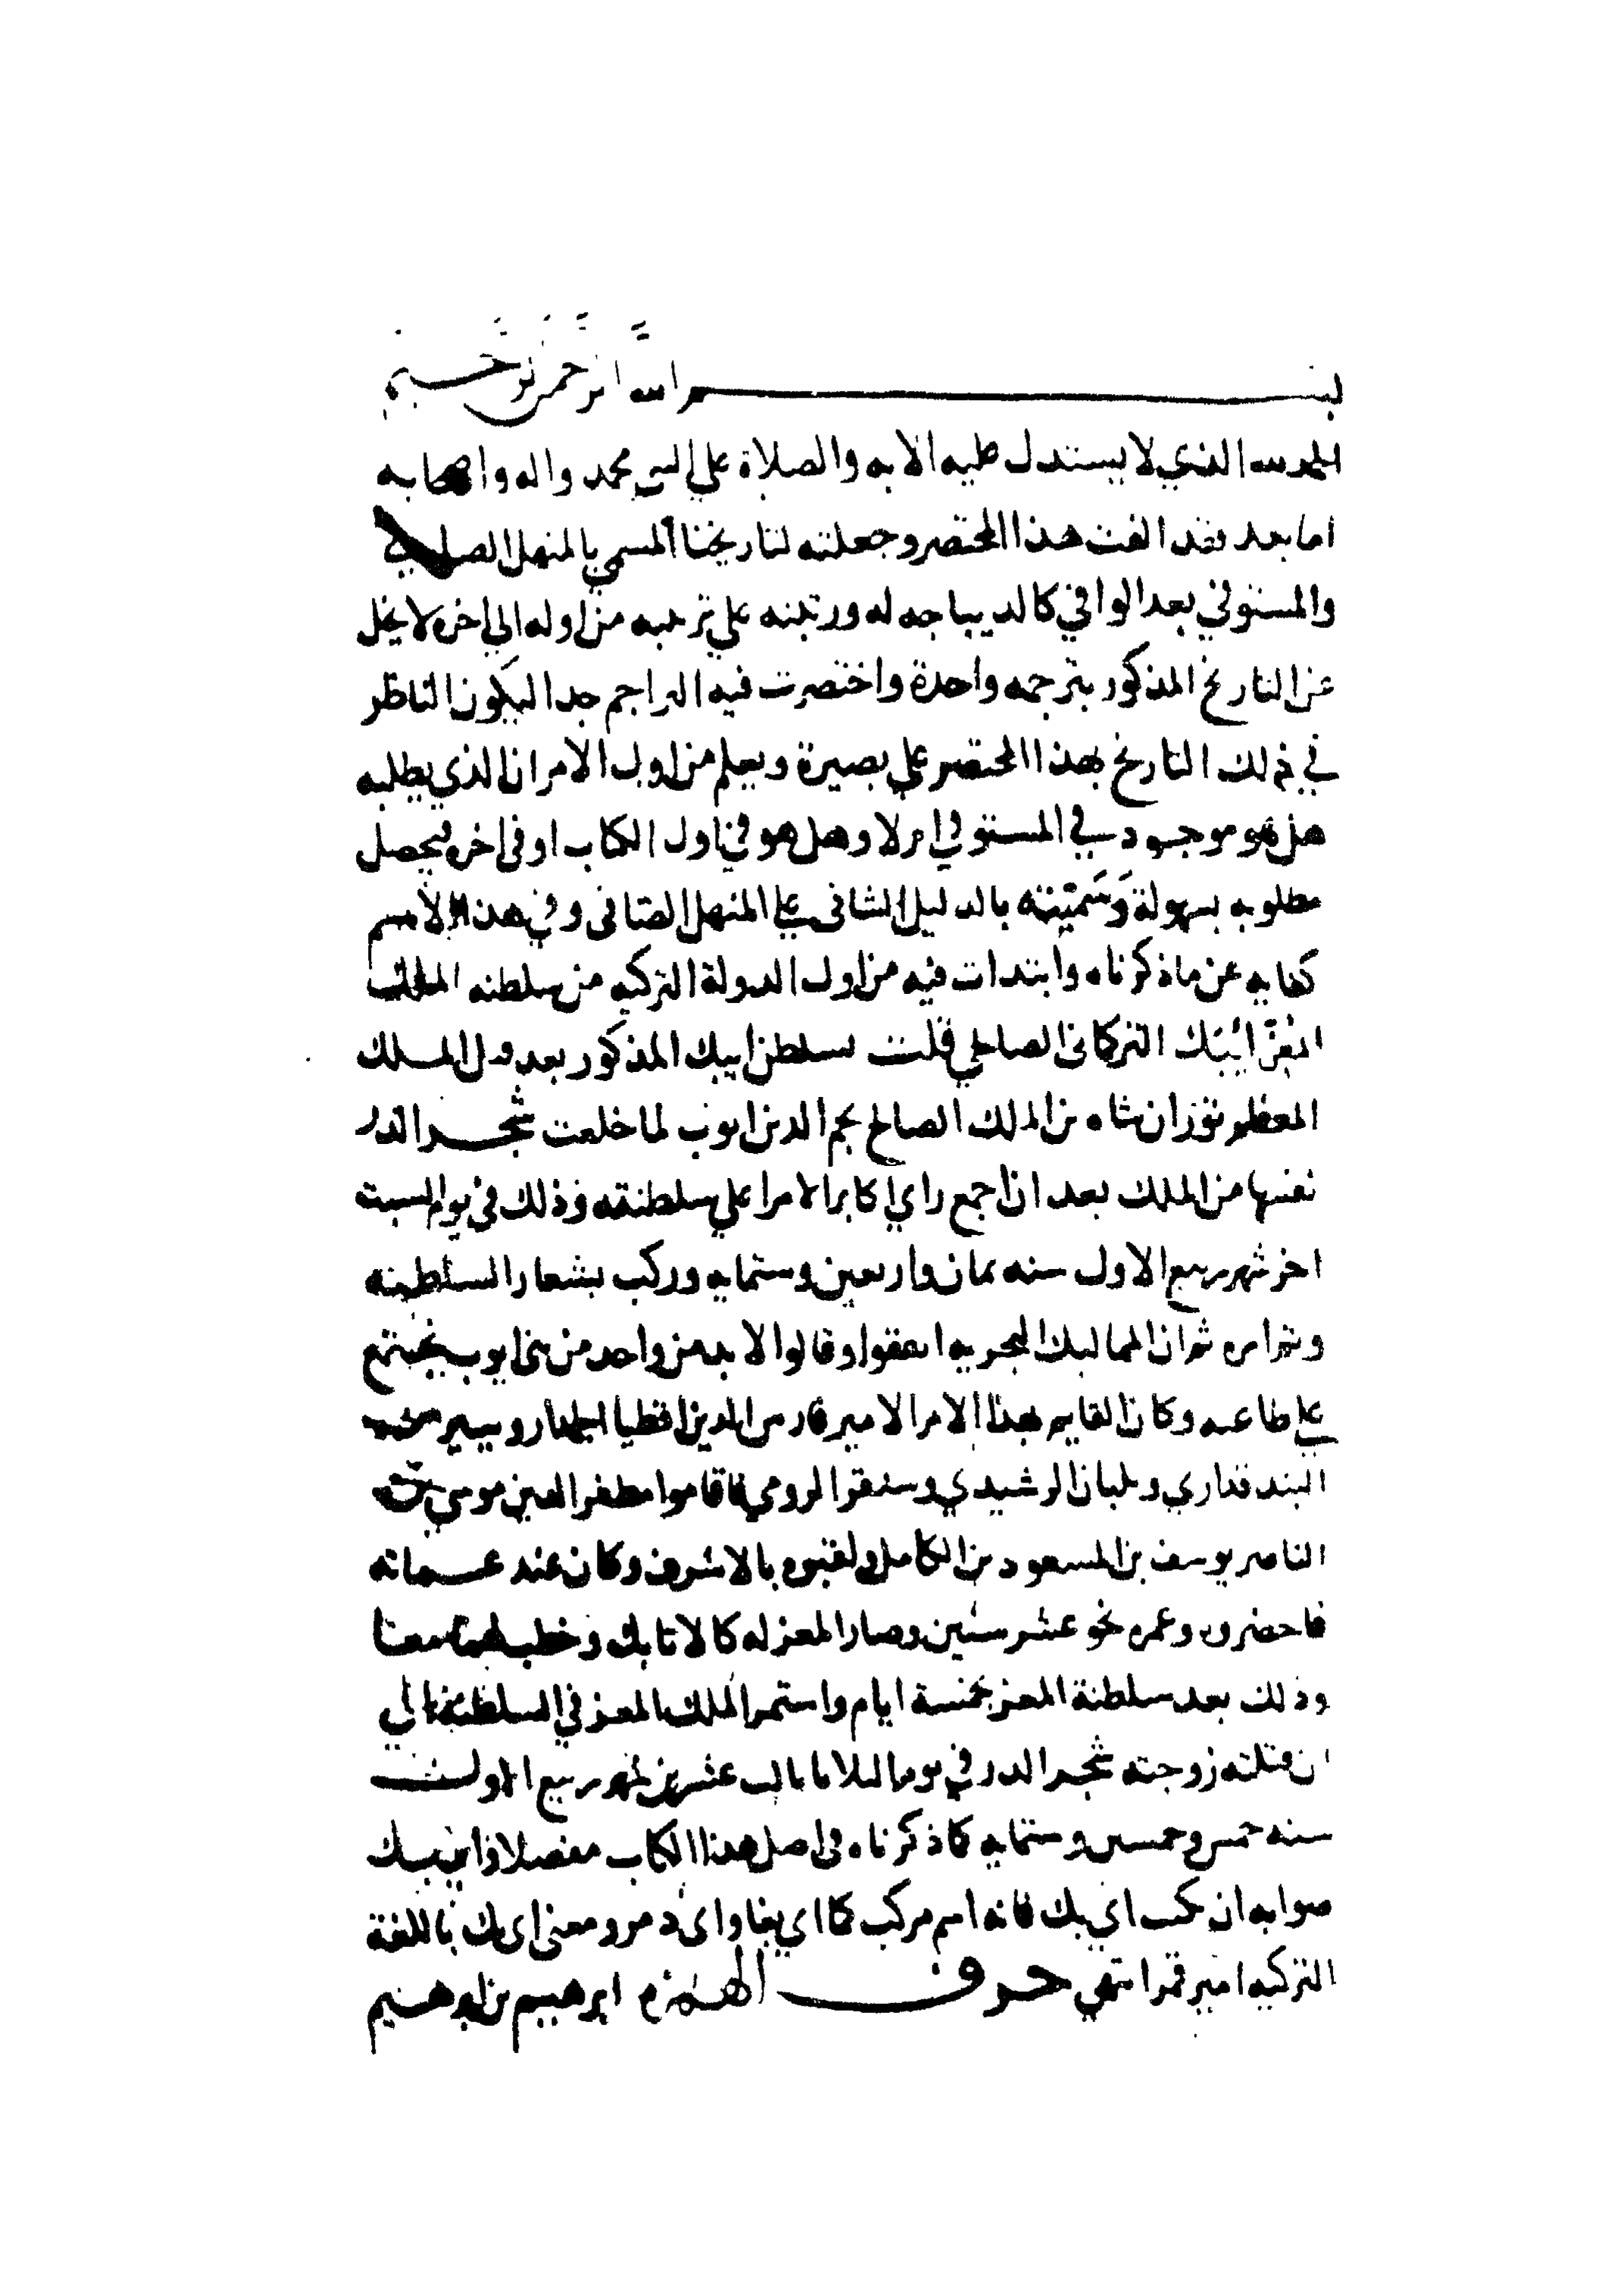 بسم الله الرحمن الرحيم
الحمد لله الذي لا يستدل عليه الا به والصلاة علي النبي محمد واله واصحابه
اما بعد فقد الفت هذا المختصر وجعلته لتاريخنا المسمي بالمنهل الصافي
والمستوفي بعد الوافي كالديباجه له ورتبته علي ترتيبه من اوله الي اخره لا يخل
عن التاريخ المذكور بترجمه واحدة واختصرت فيه التراجم جدا ليكون الناظر
في ذلك التاريخ بهذا المختصر علي بصيرة ويعلم من اول الامر ان الذي يطلبه
هل هو موجود في المستوفي ام لا وهل هو في اول الكتاب او في اخره فيحصل
مطلوبه بسهولة وَسَمّيته بالدليل الشافى على المنهل الصافى وفي هذا الاسم
كفايه عن ما ذكرناه وابتدات فيه من اول الدولة التركيه من سلطنه الملك
المُعِزّ ايْبَك التركمانى الصالحي قلت تسلطن ايبك المذكور بعد قتل الملك
المعظم توران شاه بن الملك الصالح نجم الدين ايوب لما خلعت شجر الدر
نفسها من الملك بعد ان اجمع راي اكابر الامرا علي سلطنته وذلك في يوم السبت
اخر شهر ربيع الاول سنه ثمان واربعين وستمايه وركب بشعار السلطنه
وتم امره ثم ان المماليك البحريه اتفقوا وقالوا لا بد من واحد من بنى ايوب يجتمع
على طاعته وكان القايم بهذا الامر الامير فارس الدين اقطيا الجمدار وبيبرس
البندقداري وبلبان الرشيدي وسنقر الرومي فاقاموا مظفر الدين موسي بن
الناصر يوسف بن المسعود بن الكامل ولقبوه بالاشرف وكان عند عماته
فاحضروه وعمره نحو عشر سنين وصار المعز له كالاتابك وخطب لهما معا
وذلك بعد سلطنة المعز بخمسة ايام واستمر الملك المعز في السلطنة الي
ان قتلته زوجته شجر الدر في يوم الثلاثا ثالث عشرين شهر ربيع الاول
سنه خمس وخمسين وستمايه كما ذكرناه في اصل هذا الكتاب مفصلا وايبك
صوابه ان يكتب اي بك فانه اسم مركب كما اي بغا واى دمر ومعنى اى بك باللغة
التركيه امير قمر انتهي حرف الهمزه ابرهيم بن ابرهيم